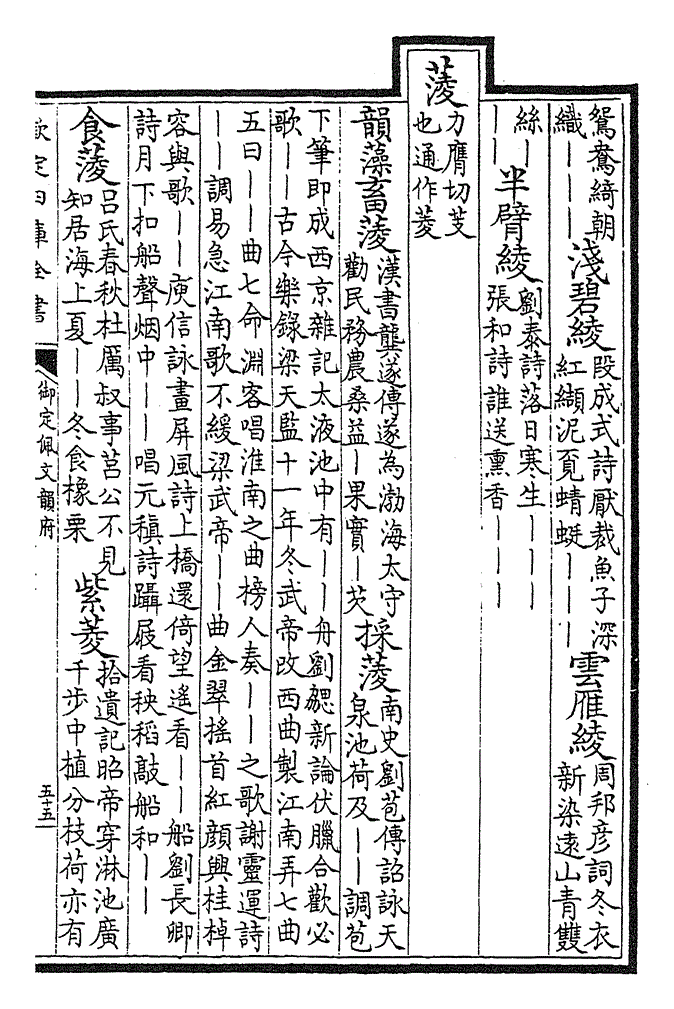 鴛鴦綺朝
織丨丨丨
淺碧綾
段成式詩厭裁魚子深
紅纈泥覓蜻蜓丨丨丨
雲雁綾
周邦彥詞冬衣
新染遠山青雙
絲丨
丨丨
半臂綾
劉泰詩落日寒生丨丨丨
張和詩誰送熏香丨丨丨
蔆
力膺切芰
也通作菱
韻藻畜蔆
漢書龔遂傳遂為渤海太守
勸民務農桑益丨果實丨芡
採蔆
南史劉苞傳詔詠天
泉池荷及丨丨調苞
下筆即成西京雜記太液池中有丨丨舟劉勰新論伏臘合歡必
歌丨丨古今樂錄梁天監十一年冬武帝改西曲製江南弄七曲
五曰丨丨曲七命淵客唱淮南之曲榜人奏丨丨之歌謝靈運詩
丨丨調易急江南歌不緩梁武帝丨丨曲金翠搖首紅顏興桂棹
容與歌丨丨庾信詠畫屏風詩上橋還倚望遙看丨丨船劉長卿
詩月下扣船聲烟中丨丨唱元稹詩躡屐看秧稻敲船和丨丨
食蔆
呂氏春秋杜厲叔事莒公不見
知居海上夏丨丨冬食橡栗
紫菱
拾遺記昭帝穿淋池廣
千步中植分枝荷亦有
欽定四庫全書
御定佩文韻府
五十五